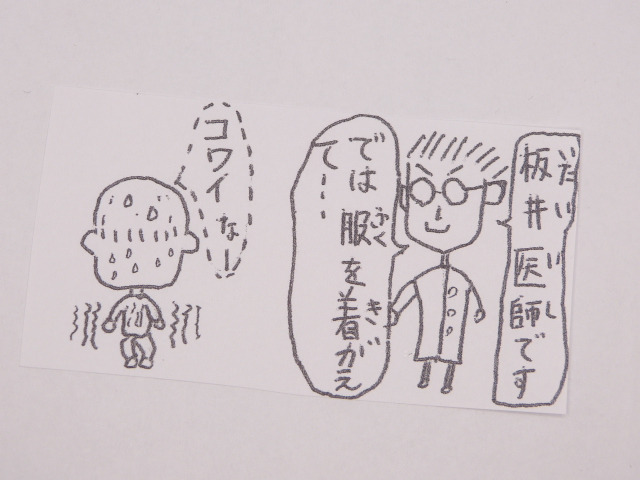 板井医師です
だい
じし
では服を着がえ
ふく
き
て……
コワイなー